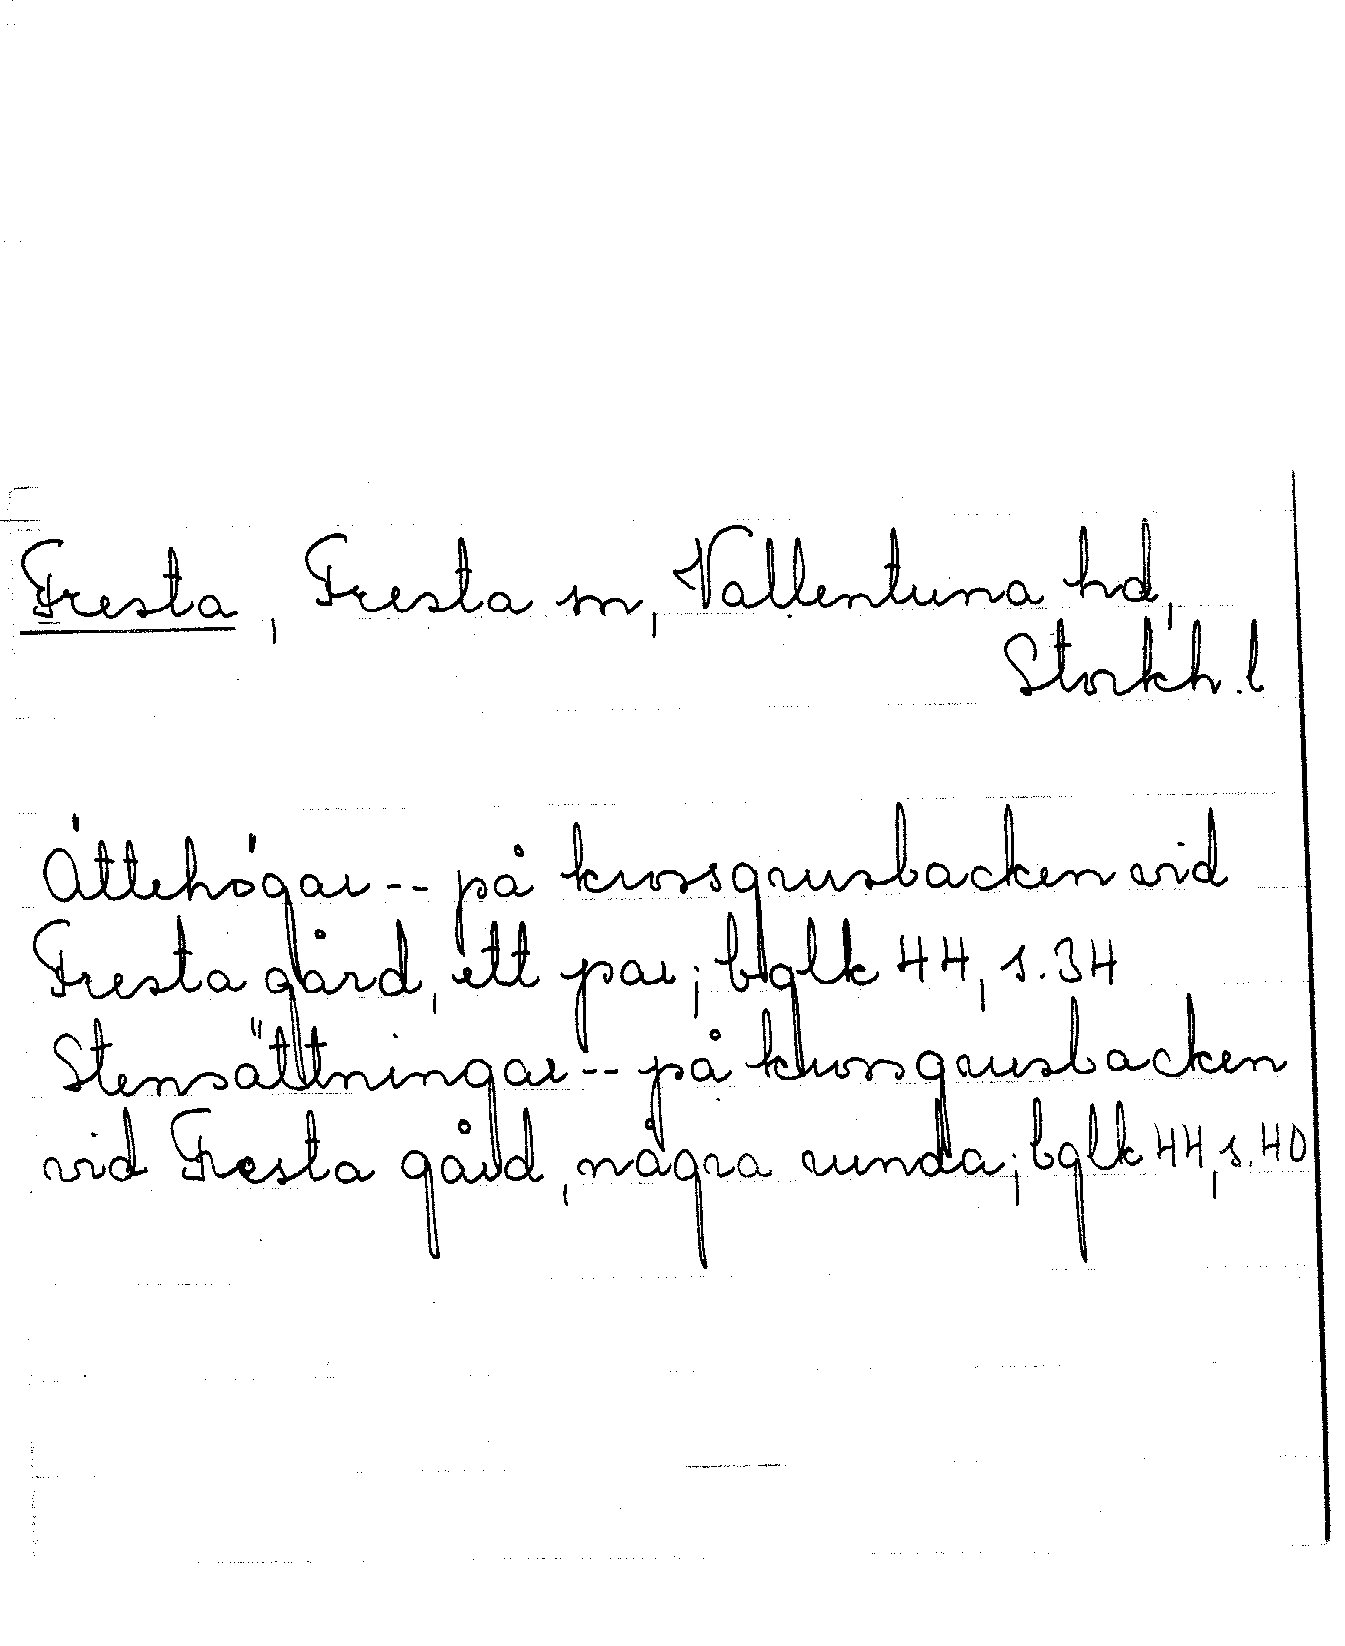 Fresta, Fresta sn, Vallentuna hd,
Storkh. l
Åttehögar -- på krossgrusbacken vid
Fresta gård, ett par; bglk 44, s. 34
Stensättningar -- på krossgrusbacken
vid Fresta gård, några runda; bglk 44, s. 40